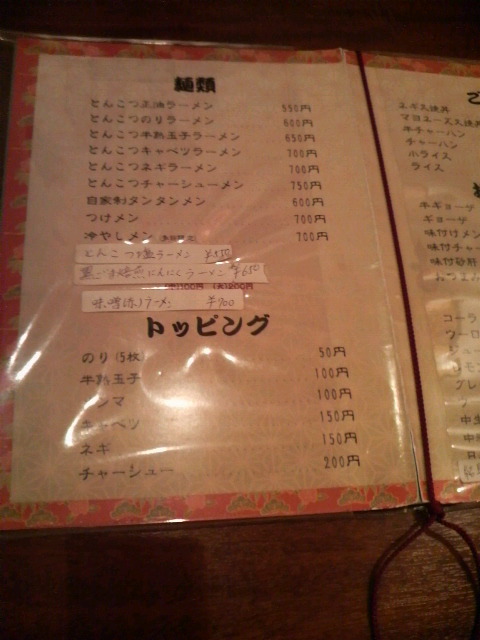 麺類
とんこつ正油ラーメン 550円
とんこつのりラーメン 600円
とんこつ半熟玉子ラーメン 650円
とんこつキャベツラーメン 700円
とんこつネギラーメン 700円
とんこつチャーシューメン 750円
自家製タンタンメン 600円
つけメン 700円
冷やしメン 700円
とんこつ塩ラーメン ¥550
黒ごま焙煎にんにくラーメン ¥650
ラーメン ¥700
トッピング
のり(5枚) 50円
半熟玉子 100円
メンマ 100円
キャベツ 150円
ネギ 150円
チャーシュー 200円
マヨネーズ
牛チャーハン
チャーハン
ライス
牛ギョーザ
ギョーザ
味付けメン
味付チャー
味付砂肝
おつまみ
コーラ
ウーロ
ジュー